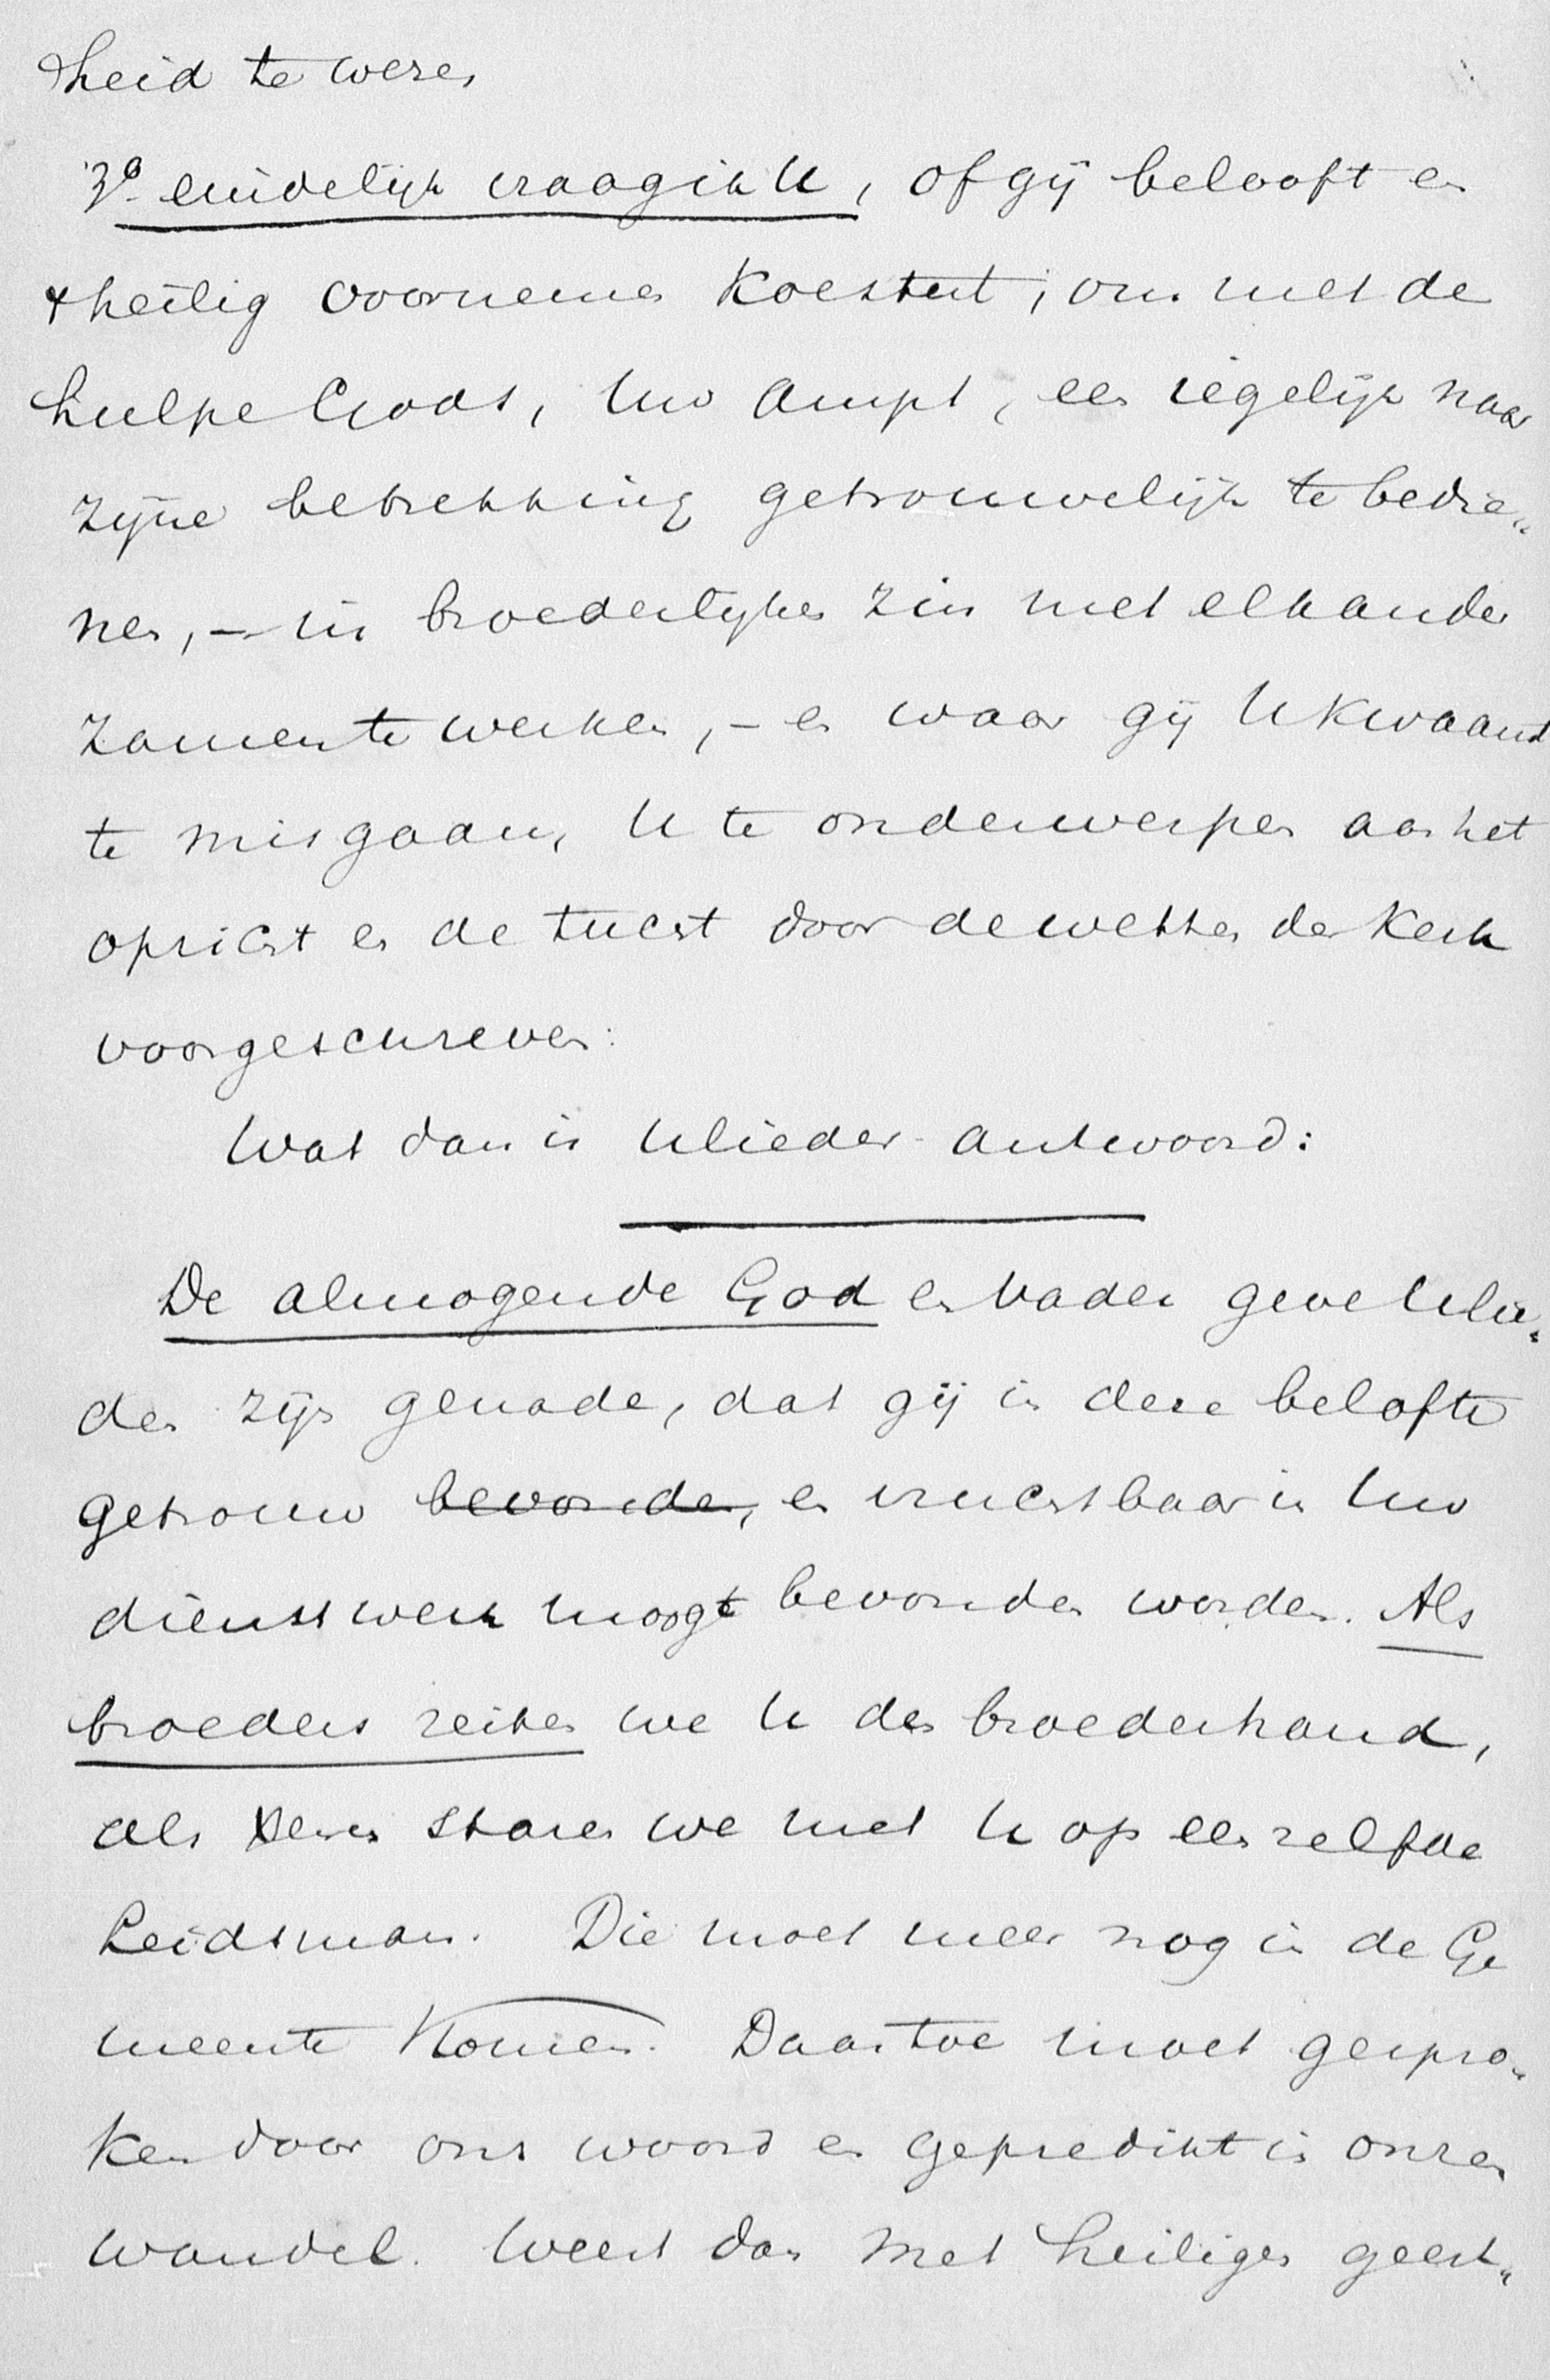 heid te weren
3o eindelijk vraag ik U, of gij belooft en
't heilig voornemen koestert, om met de
hulpe Gods, Uw Ampt, een iegelijk naar
zijne betrekking getrouwelijk te bedie„
nen, – in broederlijken zin met elkander
zamen te werken, – en waar gij U kwaamt
te misgaan, U te onderwerpen aan het
opzicht en de tucht door de wetten der Kerk
voorgeschreven:
Wat dan is Ulieder antwoord:
De almogende God en Vader geve Ulie„
den zijn genade, dat gij in deze belofte
getrouw bevonden, en vruchtbaar in Uw
dienstwerk moogt bevonden worden. Als
broeders reiken we U de broederhand,
als staren we met U op een zelfde
Leidsman. Die moet meer nog in de Ge
meente komen. Daartoe moet gespro„
ken door ons woord en gepredikt in onzen
wandel. Weest dan met heiligen geest„